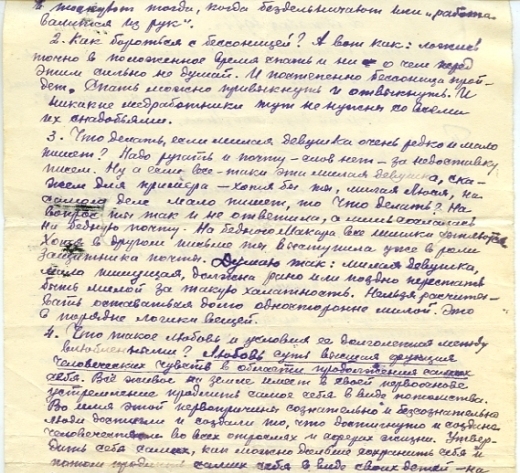 и тоскуют тогда, когда бездельничают или „работа
валится из рук".
2. Как бороться с бессоницей? А вот как: ложись
точно в положенное время спать и ни о чем перед
этим сильно не думай. И постепенно бессоница прой-
дет. Спать можно привыкнуть и отвыкнуть. И
никакие медработники тут не нужны со всеми
их снадобьями.
3. Что делать, если милая девушка очень редко и мало
пишет? Надо ругать и почту – слов нет – за недоставку
писем. Ну а если все-таки эта милая девушка, ска-
жем для примера – хотя бы ты, милая Люся, на
самом деле мало пишет, то что делать? На
вопрос ты так и не ответила, а лишь сослалась
на бедную почту. На бедного Макара все шишки валятся
Хотя в другом письме ты выступила уже в роли
защитника почты. Думаю так: милая девушка,
мало пишущая, должна рано или поздно перестать
быть милой за такую халатность. Нельзя расчиты-
вать оставаться долго односторонне милой. Это
в порядке логики вещей.
4. Что такое любовь и условия ее долголетия между
влюбленными? Любовь суть высшая функция
человеческих чувств в области продолжения самих
себя. Всё живое на земле имеет в своей первооснове
устремление продлить самое себя в виде потомства.
Во имя этой первопричины сознательно и бессознательно
люди достигли и создали то, что достигнуто и создано
человечеством во всех отраслях и сферах жизни. Утвер-
дить себя самих, как можно дольше сохранить себя и
потом самих себя в виде своих детей – ка-